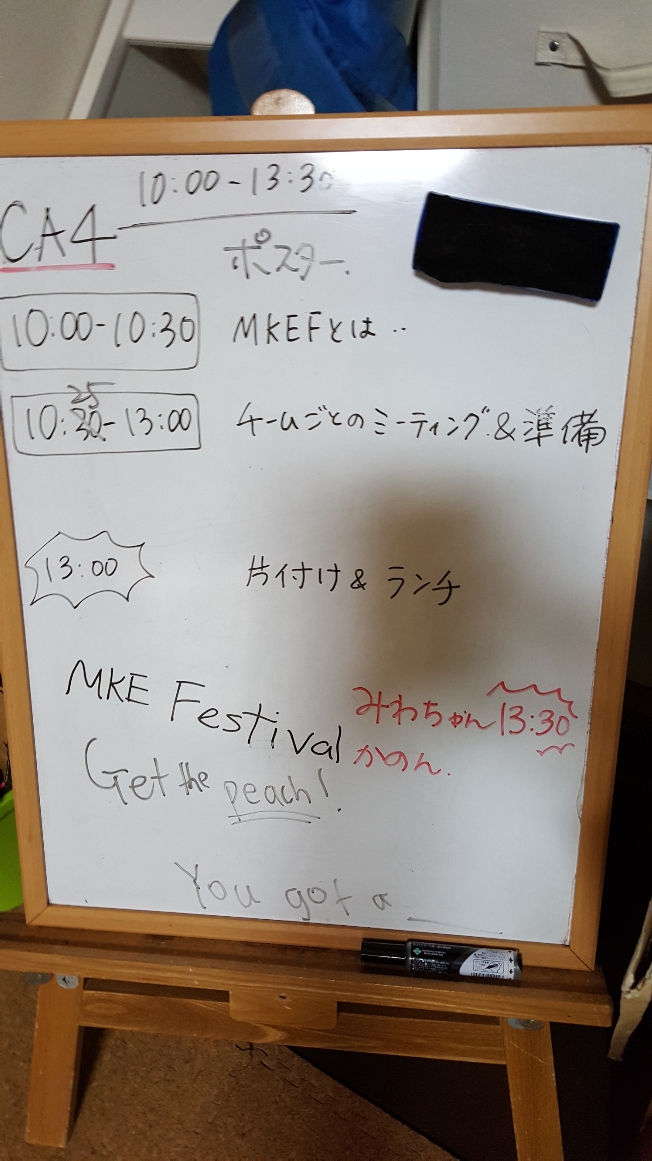 10:00-13:30
CA4
ポスター.
10:00-10:30 MKEFとは..
25
10:30-13:00 チームごとのミーティング&準備
13:00 片付け & ランチ
MKE Festival
みわちゃん 13:30
かのん.
Get the peach!.
You got a ____